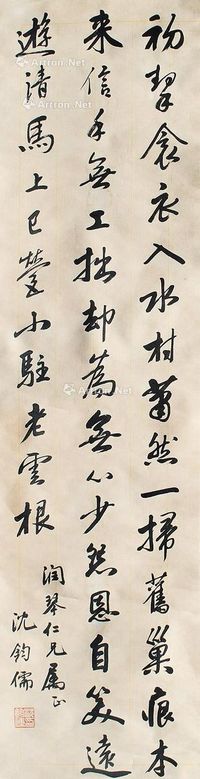 初挈衾衣入水村蕭然一掃舊巢痕本
来信手無工拙却為無心少怨恩自笑遠
遊清馬上已營小駐老雲根
润琴仁兄属正
沈鈞儒
Artron.Net